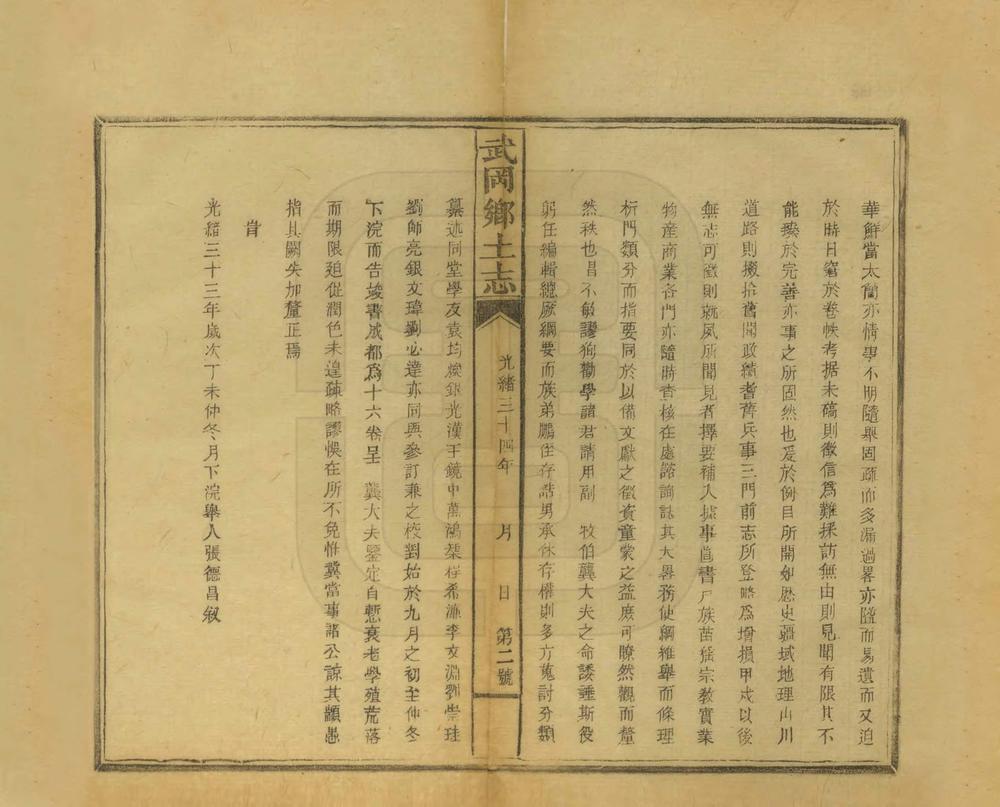 華鮮當太簡亦情學不明隨舉固疏而多漏過畧亦隨而易遺而又迫
於時日窘於卷帙考据未礭則徵信爲難採訪無由則見聞有限其不
能臻於完善亦事之所固然也爰於例目所開如歷史疆域地理山川
道路則搬拾舊聞政績耆舊兵事三門前志所登略爲增損甲戌以後
無志可徵則就夙所聞見者擇要補入據事直書戶族苗猺宗教實業
物產商業各門亦隨時查核在處諮詢誌其大畧務使綱維舉而條理
析門類分而指要同於以備文獻之徵資童蒙之益庶可瞭然觀而釐
然秩也昌不敏謬徇勸學諸君請用副 牧伯龔大夫之命諉諈斯役
躬任編輯總厥綱要而族弟鵬侄存誥男承休存權則多方蒐討分類
武岡鄉土志
光緒三十四年 月 日 第二號
纂述同堂學友袁均燦銀光漢王鏡中萬鴻棻程希濂李文淵劉崇珪
劉師亮銀文瑋劉必達亦同與參訂兼之校對始於九月之初至仲冬
下浣而告竣書成都爲十六卷呈 龔大夫鑒定自慙衰老學殖荒落
而期限廹促潤色未遑疎略謬悞在所不免惟冀當事諸公諒其顓愚
指其闕失加釐正焉
旹
光緒三十三年歲次丁未仲冬月下浣舉人張德昌叙